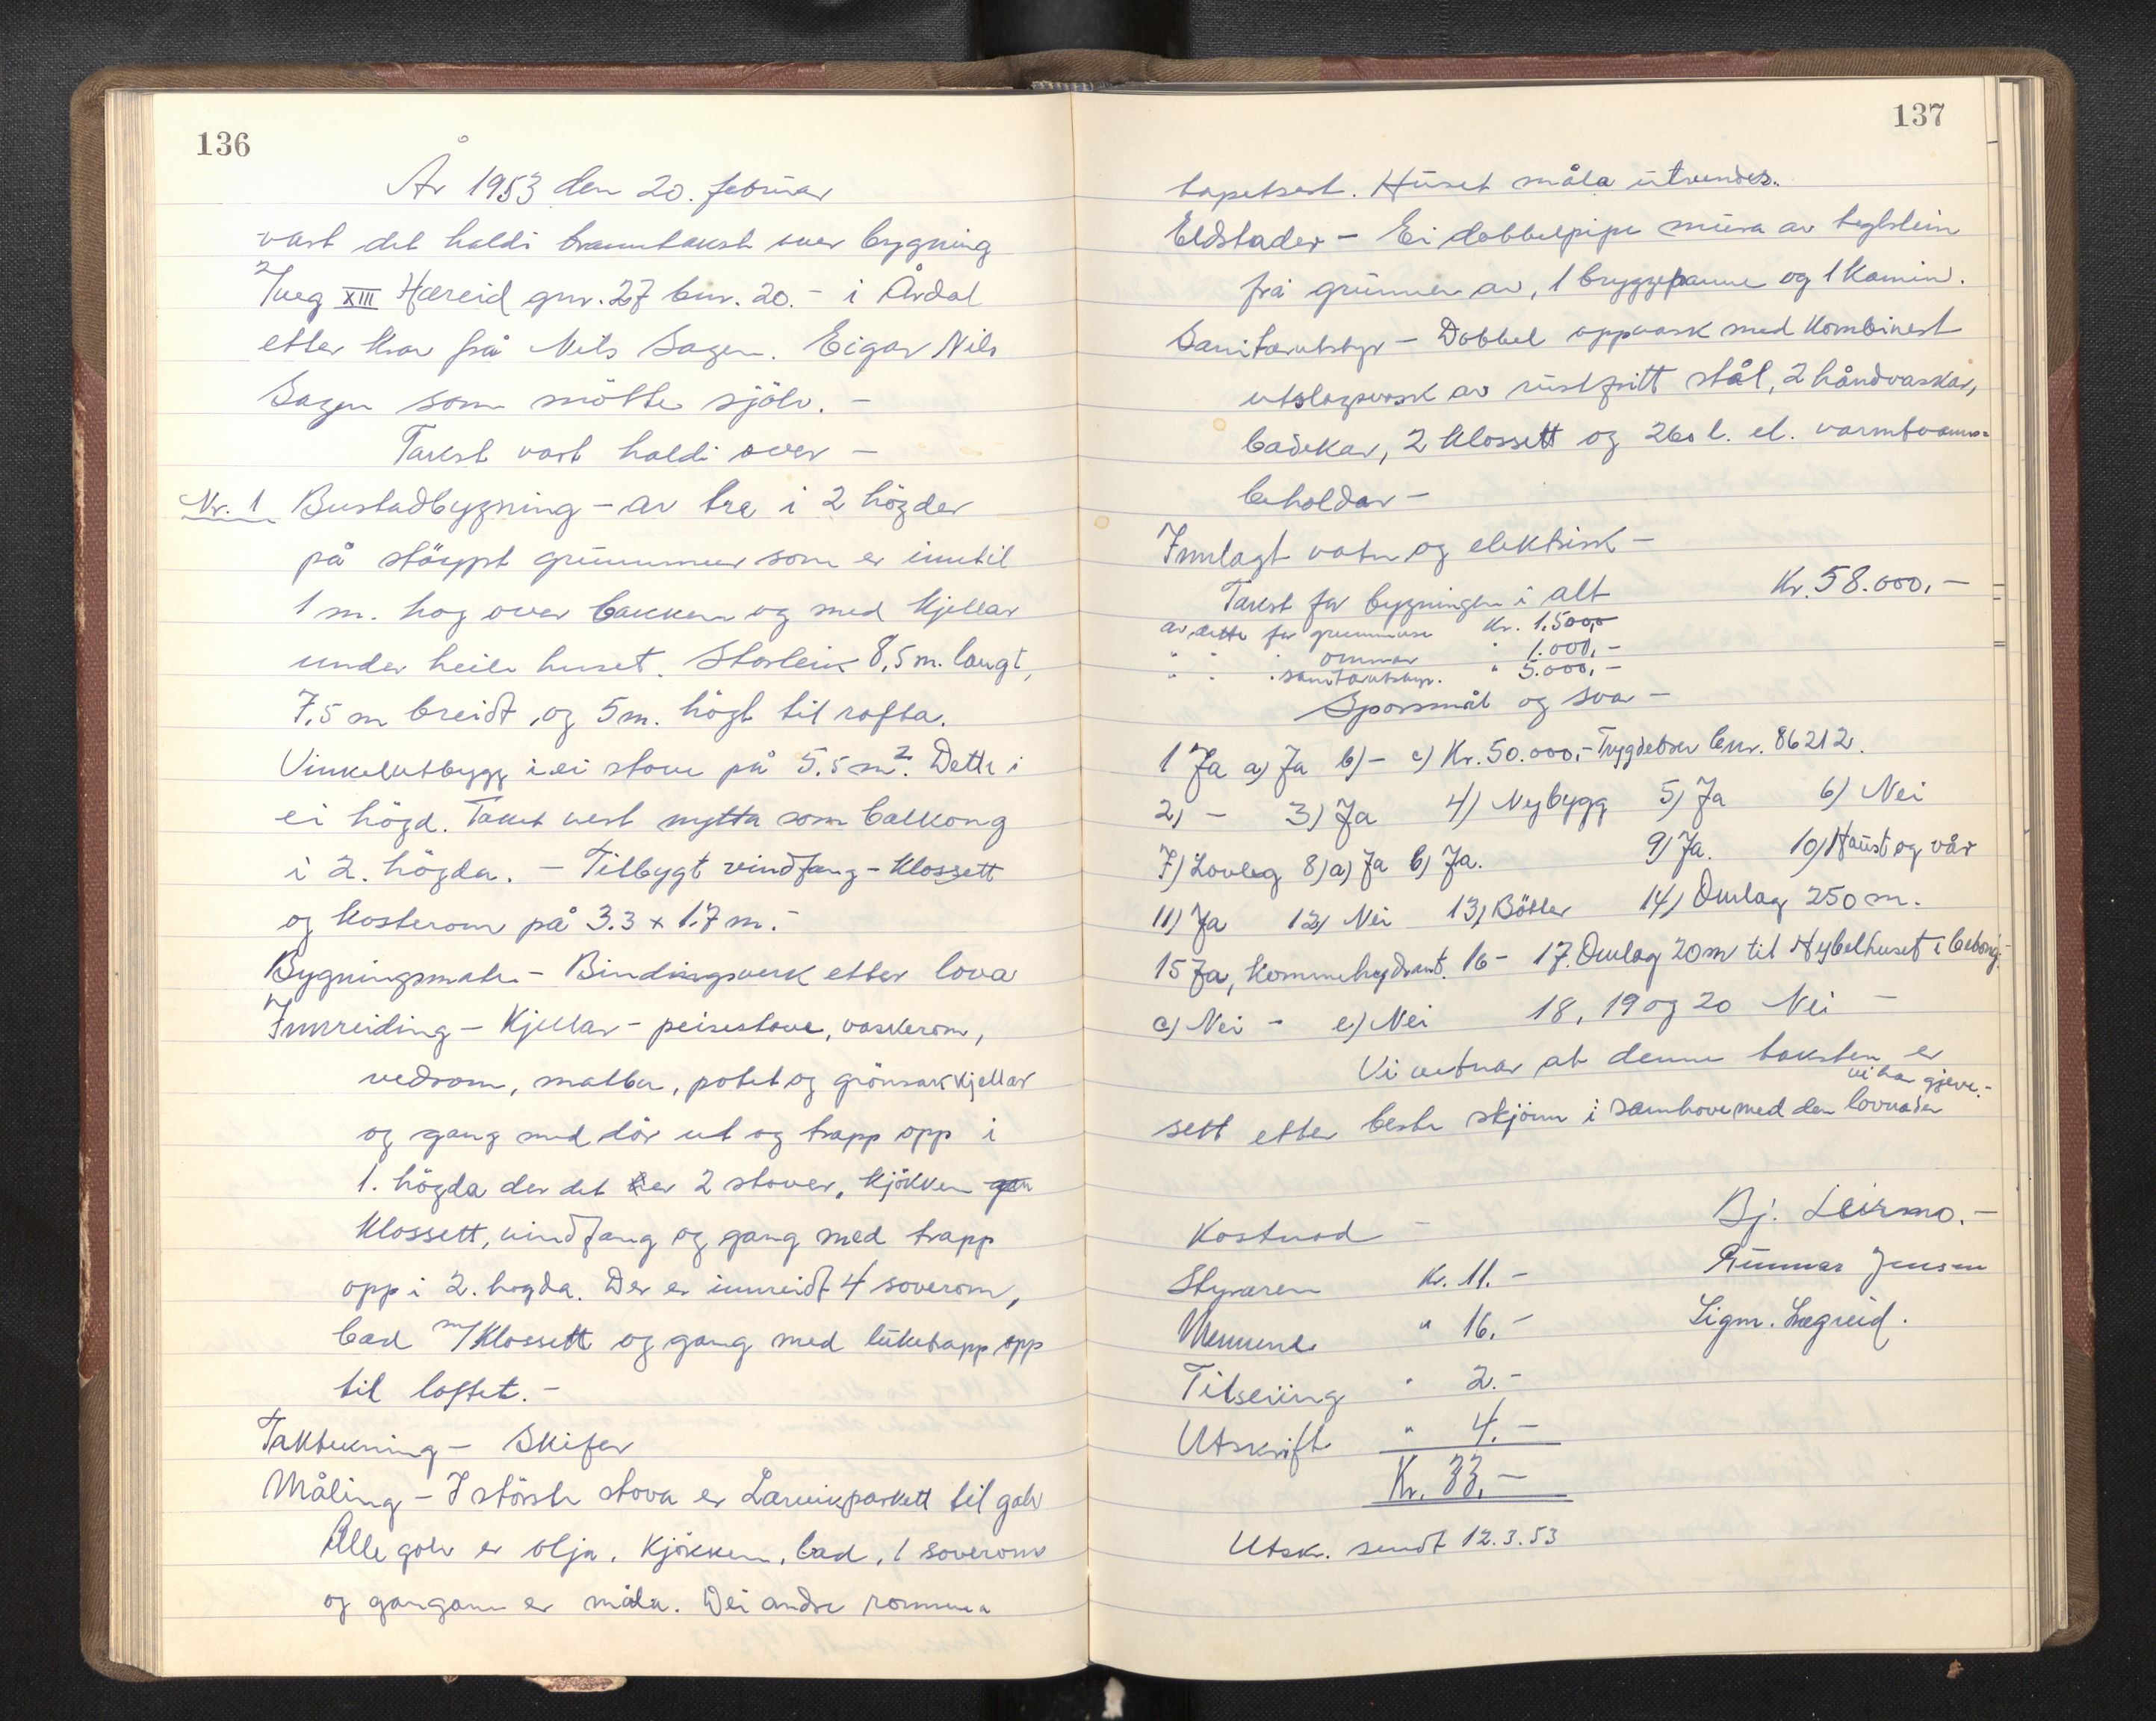 136
År 1953 den 20. februar
vart det haldi branntakst over bygning
Hæreid gnr. 27 bnr. 20.- i Årdal
etter krav frå Nils Sagen. Eigar Nils
Sagen som mötte sjölv. -
Takst vart haldi over -
Nr. 1 Bustadbygning - av tre i 2 högder
på stöypt grunnmur som er inntil
1 m. hog over bakken og med kjellar
under heile huset. Storleik 8,5 m. langt,
7,5 m breidt, og 5 m. högt til rafta.
Vinkelutbygg i ei stove på 5.5 m². Dette i
ei högd. Taket vert nytta som balkong
i 2. högda. - Tilbygt vindfang - klossett
og kosterom på 3.3 x 1.7 m.-
Bygningsmåte - Bindingsverk etter lova
Innreiding - Kjellar - peisestove, vaskerom,
vedrom, matbu, potet og grönsakkjellar
og gang med dör ut og trapp opp i
1. högda der det er 2 stover, kjökken
klossett, vindfang og gang med trapp
opp i 2. hogda. Der er innreidt 4 soverom,
bad m/klossett og gang med luketrapp opp
til loftet. -
Taktekning - Skifer
Måling - I störste stova er Larvikparkett til golv
Alle golv er olja. Kjökken, bad, 1 soverom
og gangane er måla. Dei andre romma
137
tapetsert. Huset måla utvendes.
Eldstader - Ei dobbelpipe mura av teglstein
frå grunnen av, 1 bryggepanne og 1 Kamin.
Sanitærutstyr - Dobbel oppvask med kombinert
utslagsvask av rustfritt stål, 2 håndvaskar,
badekar, 2 klossett og 260 l. el. varmtvanns-
beholdar -
Innlagt vatn og elektrisk -
Takst for bygningen i alt Kr. 58.000,-
av dette for grunnmur Kr. 1.500,-
" " " omnar " 1.000,-
" " " sanitærutstyr. " 5.000,-
Sporsmål og svar -
1 Ja a) Ja b) - c) Kr. 50.000,- Trygdebrev bnr. 86212.
2) - 3) Ja 4) Nybygg 5) Ja 6) Nei
7) Lovleg 8) a) Ja b) Ja. 9) Ja. 10) Haust og vår
11) Ja 12) Nei 13) Bötter 14) Omlag 250 m.
15 Ja, kommehydrant. 16 - 17. Omlag 20 m til Hybelhuset i betong.
c) Nei - e) Nei 18, 19 og 20 Nei -
Vi vitnar at denne taksten er
sett etter beste skjönn i samhove med den lovnaden
vi har gjeve.-
Kostnad -
Bj. Leirmo. -
Styraren Kr. 11. -
Gunnar Jensen
Mennene " 16. -
Sigm. Lægreid.
Tilseiing " 2. -
Utskrift " 4. -
Kr. 33, -
Utsk. sendt 12.3.53